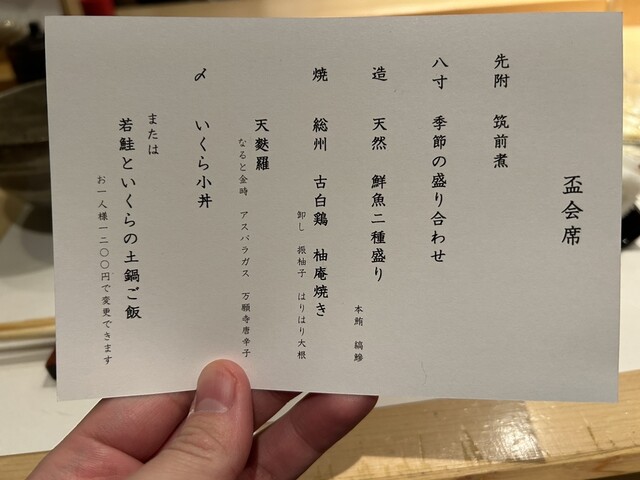 盃会席
先附　筑前煮
八寸　季節の盛り合わせ
造　天然　鮮魚二種盛り
本鮪　縞鯵
焼　総州　古白鶏　柚庵焼き
卸し　振柚子　はりはり大根
天麩羅
なると金時　アスパラガス　万願寺唐辛子
〆　いくら小丼
または
若鮭といくらの土鍋ご飯
お一人様一二〇〇円で変更できます